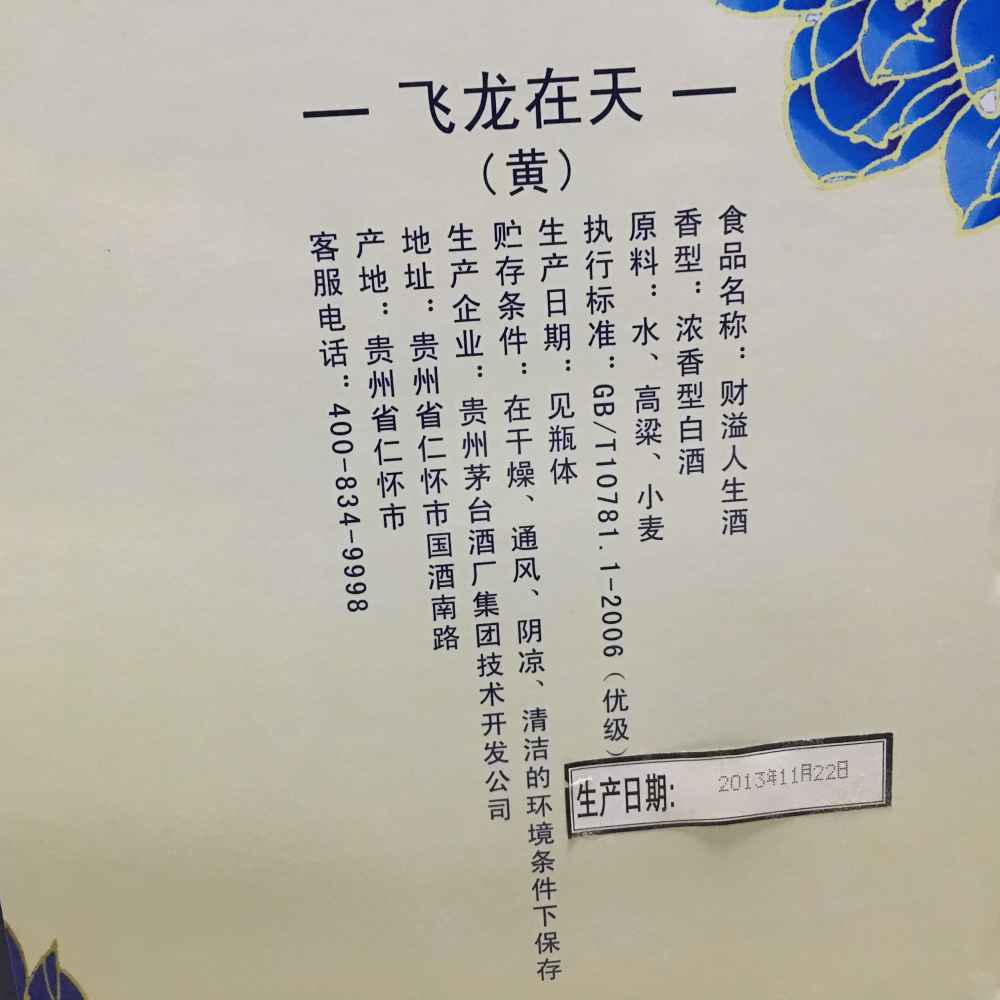 — 飞龙在天 —
（黄）
食品名称：财溢人生酒
香型：浓香型白酒
原料：水、高粱、小麦
执行标准：GB/T10781.1-2006（优级）
生产日期：见瓶体
贮存条件：在干燥、通风、阴凉、清洁的环境条件下保存
生产企业：贵州茅台酒厂集团技术开发公司
地址：贵州省仁怀市国酒南路
产地：贵州省仁怀市
客服电话：400-834-9998
生产日期：2013年11月22日